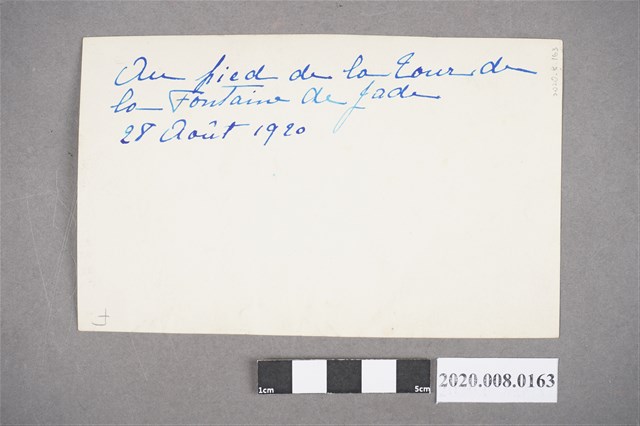 Au pied de la Tour de
la Fontaine de Jade
28 Août 1920
1cm 5cm
2020.008.0163